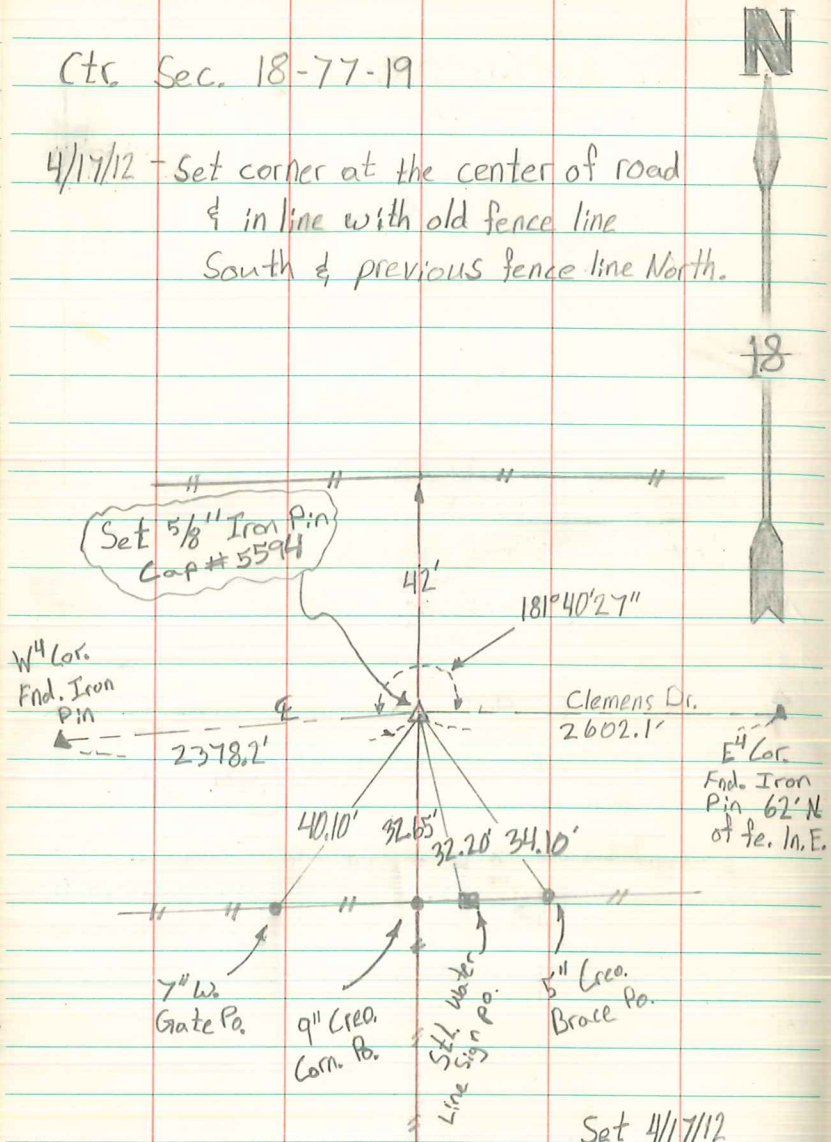 N
Ctr. Sec. 18-77-19
4/17/12 - Set corner at the center of road
& in line with old fence line
South & previous fence line North.
18
Set 5/8" Iron Pin
Cap # 5594
42'
181°40'27"
W4 Cor.
Fnd. Iron
Pin
℄
2378.2'
Clemens Dr.
2602.1'
E4 Cor.
Fnd. Iron
Pin 62' N
of fe. ln. E.
40.10'
32.65'
32.20'
34.10'
7" W.
Gate Po.
9" Creo.
Corn. Po.
Stl. Water
Line Sign Po.
5" Creo.
Brace Po.
Set 4/17/12